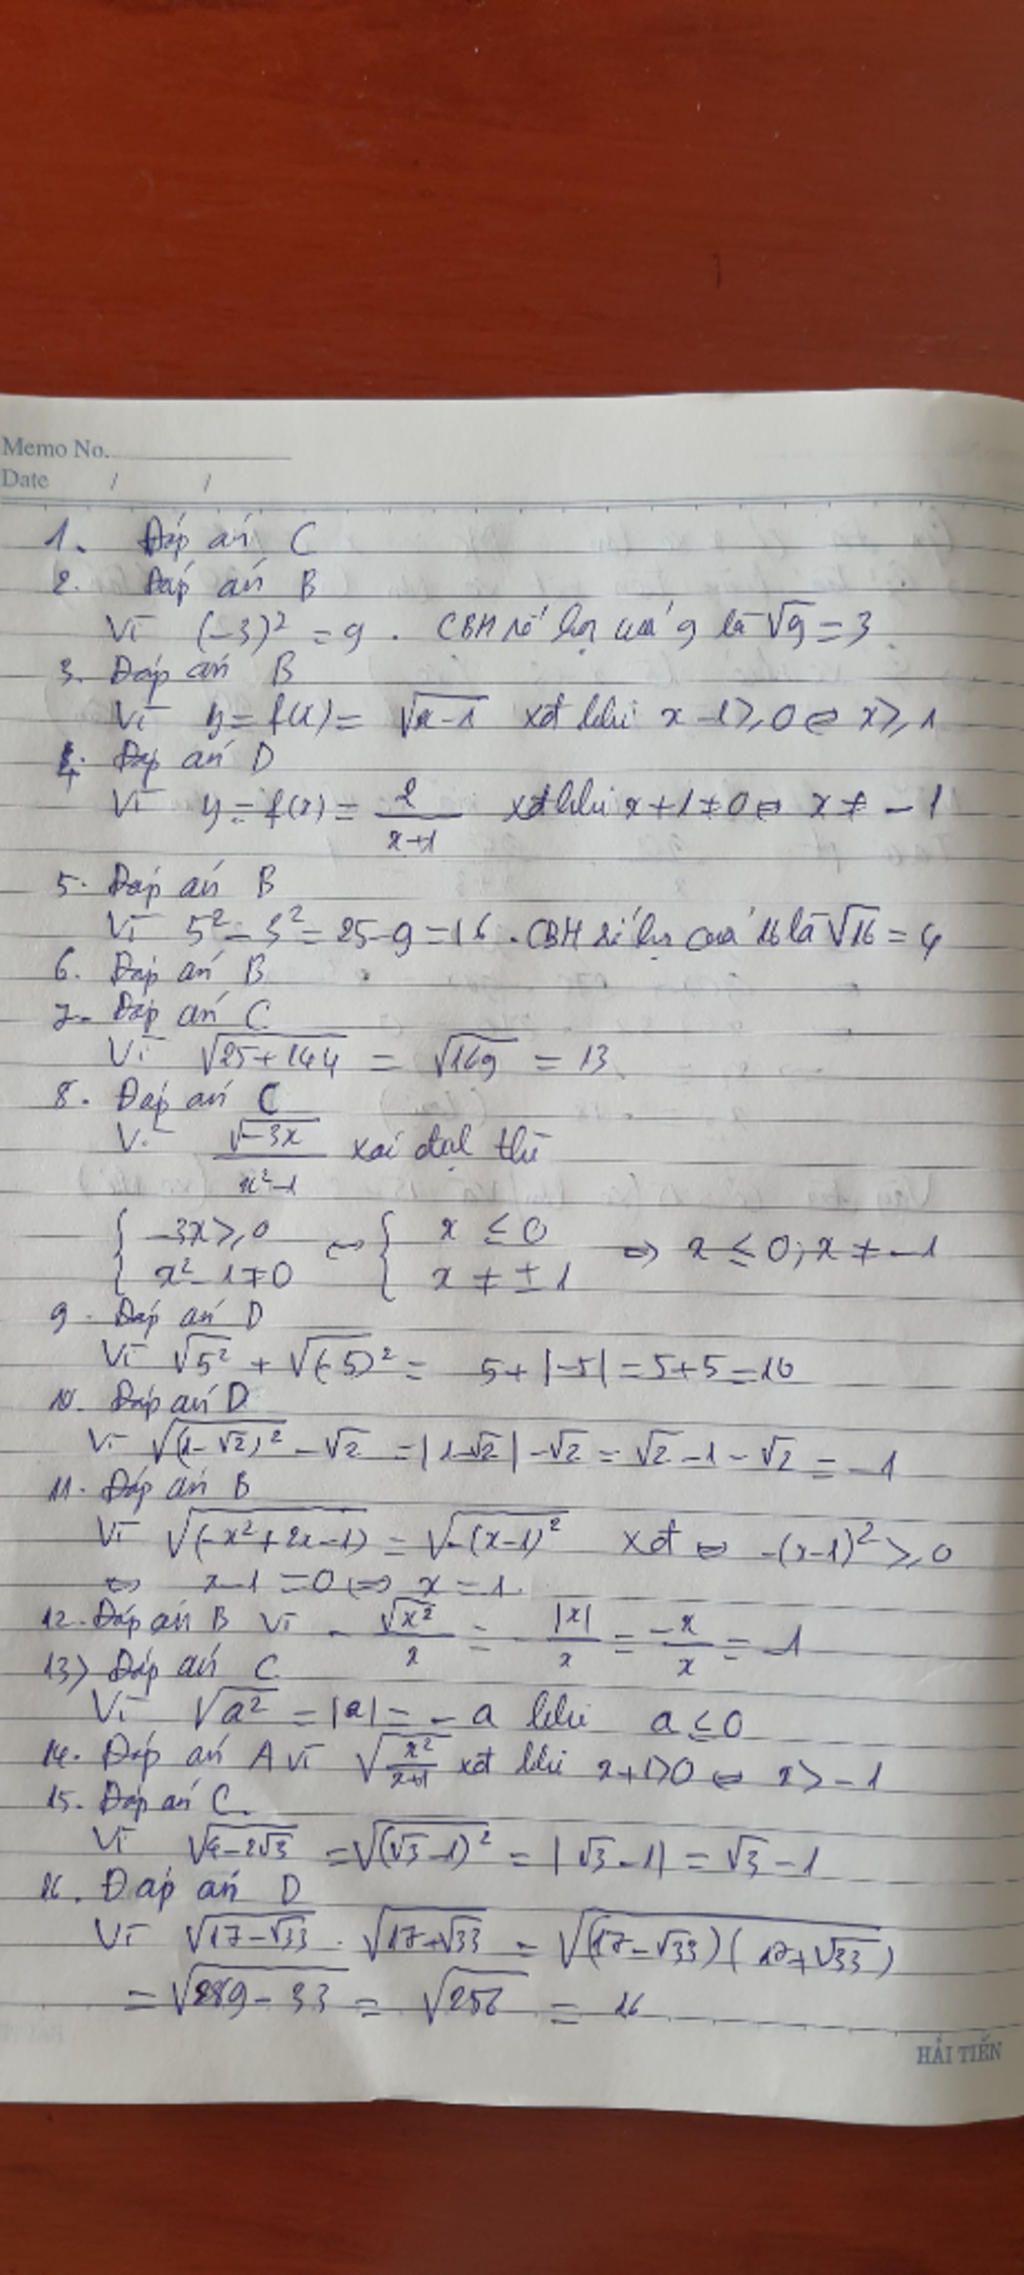 Memo No.
Date / /
1. Đáp án C
2. Đáp án B
Vì (-3)² = 9. CBH số học của 9 là √9 = 3
3. Đáp án B
Vì y = f(x) = √(x-1) xđ khi x-1 ⩾ 0 ⇔ x ⩾ 1
4. Đáp án D
Vì y = f(x) = 2/(x+1) xđ khi x+1 ≠ 0 ⇔ x ≠ -1
5. Đáp án B
Vì 5² - 3² = 25-9 = 16. CBH số học của 16 là √16 = 4
6. Đáp án B
7. Đáp án C
Vì √(25+144) = √169 = 13
8. Đáp án C
Vì √(-3x)/(x²-1) xác định thì
{ -3x ⩾ 0 ; x²-1 ≠ 0 ⇔ { x ≤ 0 ; x ≠ ±1 ⇔ x ≤ 0; x ≠ -1
9. Đáp án D
Vì √5² + √(-5)² = 5 + |-5| = 5+5 = 10
10. Đáp án D
Vì √(1-√2)² - √2 = |1-√2| - √2 = √2 - 1 - √2 = -1
11. Đáp án B
Vì √(-x²+2x-1) = √-(x-1)² xđ ⇔ -(x-1)² ⩾ 0
⇔ x-1 = 0 ⇔ x = 1
12. Đáp án B Vì √x²/x = |x|/x = -x/x = -1
13) Đáp án C
Vì √a² = |a| = -a khi a ≤ 0
14. Đáp án A vì √(x²/(x+1)) xđ khi x+1>0 ⇔ x > -1
15. Đáp án C.
Vì √(4-2√3) = √(√3-1)² = |√3-1| = √3-1
16. Đáp án D
Vì √(17-√33) . √(17+√33) = √((17-√33)(17+√33))
= √(289-33) = √256 = 16
HẢI TIẾN